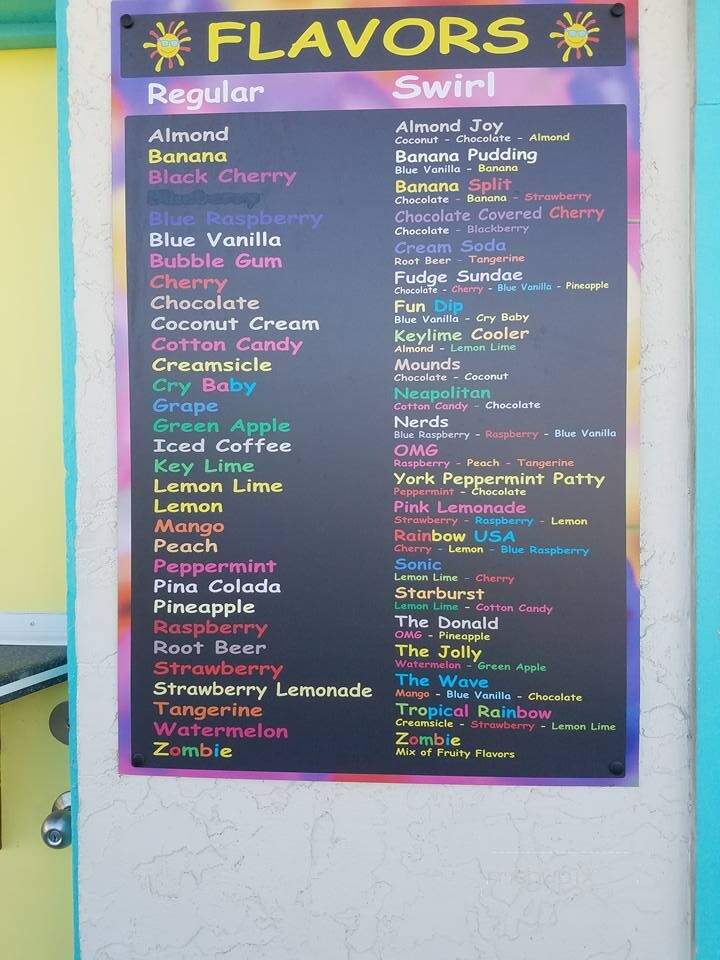 FLAVORS
Regular
Almond
Banana
Black Cherry
Blue Raspberry
Blue Vanilla
Bubble Gum
Cherry
Chocolate
Coconut Cream
Cotton Candy
Creamsicle
Cry Baby
Grape
Green Apple
Iced Coffee
Key Lime
Lemon Lime
Lemon
Mango
Peach
Peppermint
Pina Colada
Pineapple
Raspberry
Root Beer
Strawberry
Strawberry Lemonade
Tangerine
Watermelon
Zombie
Swirl
Almond Joy
Coconut - Chocolate - Almond
Banana Pudding
Blue Vanilla - Banana
Banana Split
Chocolate - Banana - Strawberry
Chocolate Covered Cherry
Chocolate - Blackberry
Cream Soda
Root Beer - Tangerine
Fudge Sundae
Chocolate - Cherry - Blue Vanilla - Pineapple
Fun Dip
Blue Vanilla - Cry Baby
Keylime Cooler
Almond - Lemon Lime
Mounds
Chocolate - Coconut
Neapolitan
Cotton Candy - Chocolate
Nerds
Blue Raspberry - Raspberry - Blue Vanilla
OMG
Raspberry - Peach - Tangerine
York Peppermint Patty
Peppermint - Chocolate
Pink Lemonade
Strawberry - Raspberry - Lemon
Rainbow USA
Cherry - Lemon - Blue Raspberry
Sonic
Lemon Lime - Cherry
Starburst
Lemon Lime - Cotton Candy
The Donald
OMG - Pineapple
The Jolly
Watermelon - Green Apple
The Wave
Mango - Blue Vanilla - Chocolate
Tropical Rainbow
Creamsicle - Strawberry - Lemon Lime
Zombie
Mix of Fruity Flavors